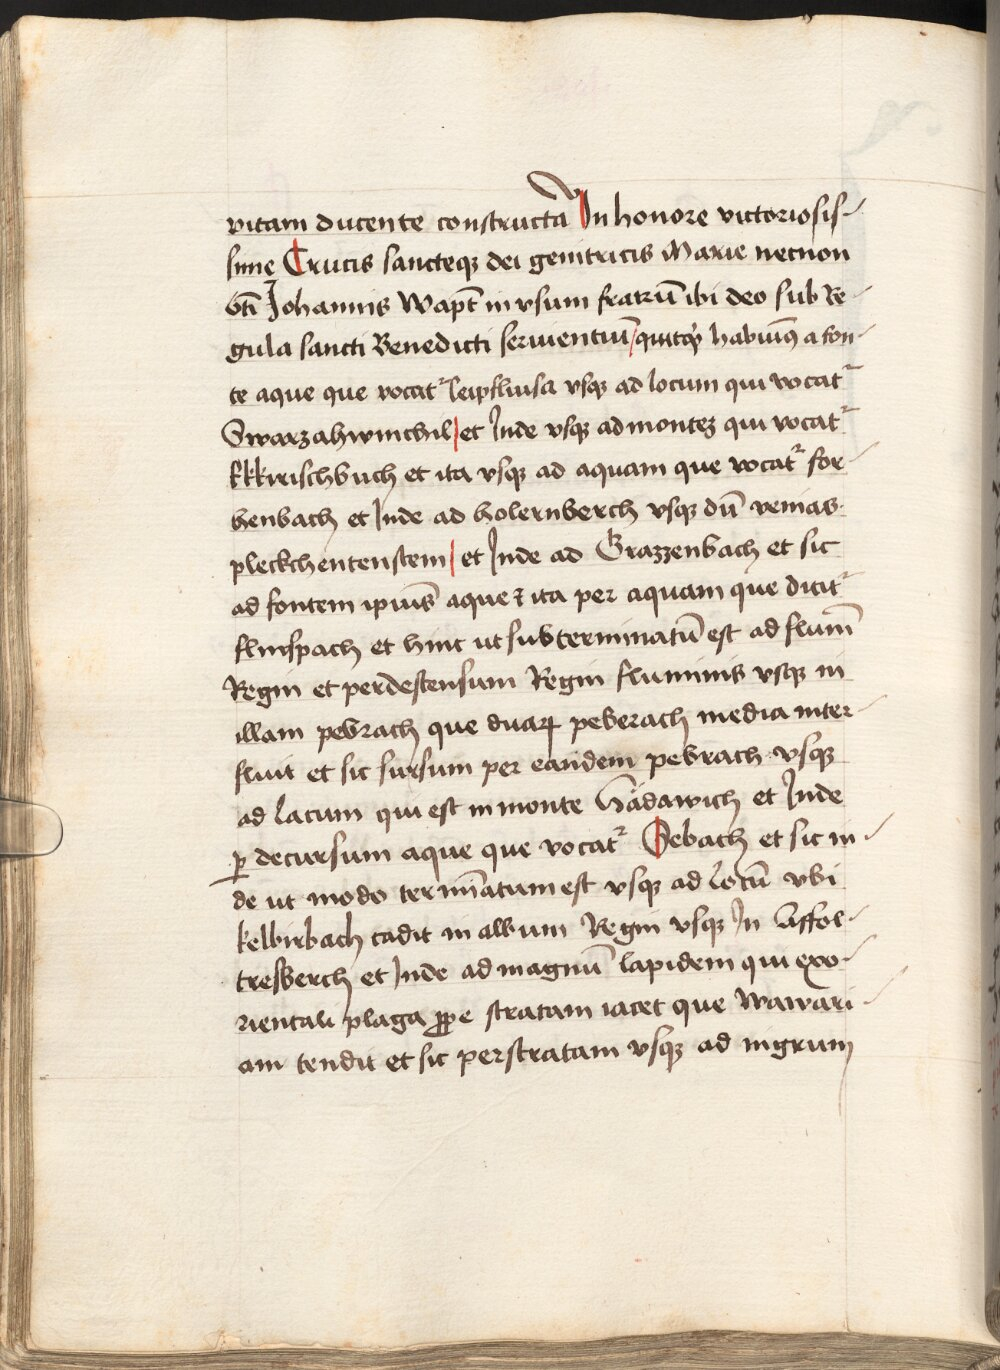 vitam ducente constructa In honore victoriosis-
sime Crucis sancteqꝫ dei genitricis Marie necnon
bti͂ Johannis Wapt͂ in vsum fratru͂ ibi deo sub Re-
gula sancti Benedicti seruientiu͂ / habuimꝰ a fon-
te aque que vocatᷣ leipflusa vsqꝫ ad locum qui vocatᷣ
Swarzahwinchil / et Inde vsqꝫ ad monteꝫ qui vocatᷣ
et ita vsqꝫ ad aquam que vocatᷣ for-
henbach et Inde ad holernberch vsqꝫ du͂ venias
pleckchentenstein / et Inde ad Grazzenbach et sic
ad fontem ipius͂ aque ⁊ ita per aquam que dicitᷣ
flinspach et hinc ut subterminatu͂ est ad flum͂
Regin et perdescensum Regin fluminis vsqꝫ in
illam pebrach que duaꝝ peberach media inter-
fluit et sic sursum per eandem pebrach vsqꝫ
ad Lacum qui est in monte Hadawich et Inde
ꝑ decursum aque que vocatᷣ Sebach et sic in-
de ut modo termi͂atum est vsqꝫ ad Locu͂ vbi
kelbirbach cadit in album Regin vsqꝫ In Affol-
tresberch et Inde ad magnu͂ lapidem qui exo-
rientali plaga ꝓpe stratam iacet que Wawari-
am tendit et sic perstratam vsqꝫ ad nigrum